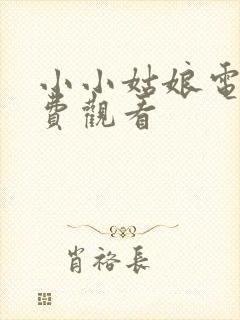 小小姑娘電
費觀看
肖裕長